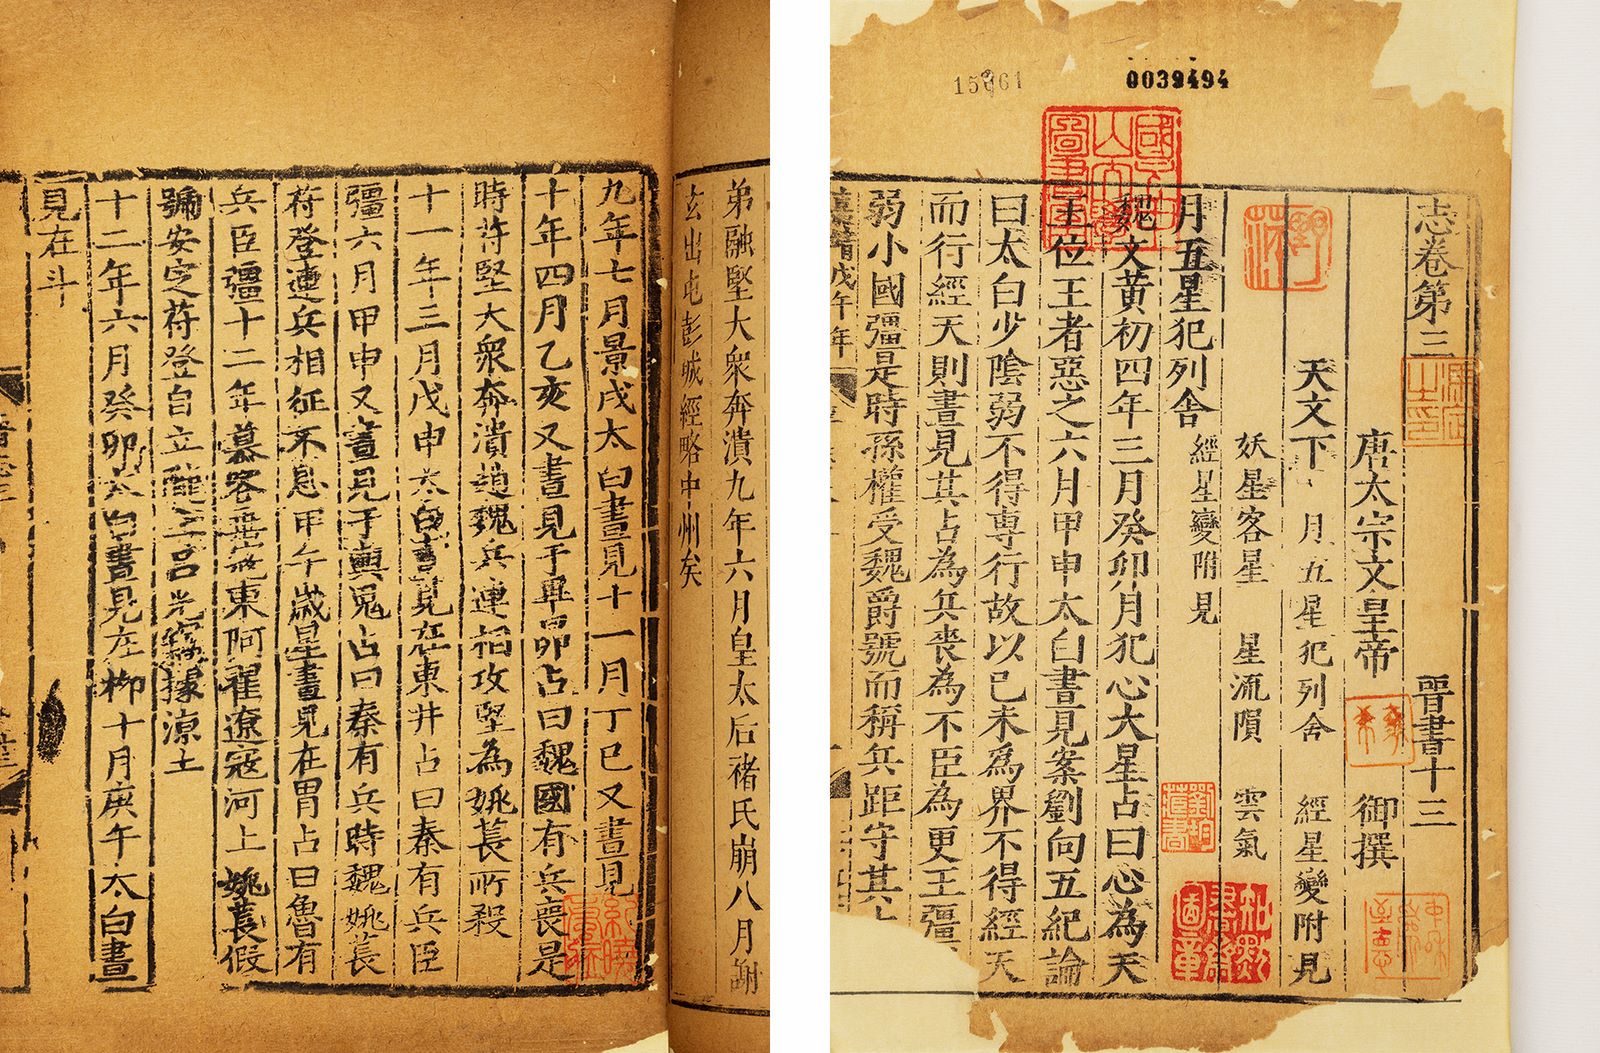 0039494
志卷第三 晉書十三
唐太宗文皇帝 御撰
天文下 月五星犯列舍 經星變附見
妖星客星 星流隕 雲氣
月五星犯列舍 經星變附見
魏文黃初四年三月癸卯月犯心大星占曰心為天
王位王者惡之六月甲申太白晝見案劉向五紀論
曰太白少陰弱不得專行故以已未為界不得經天
而行經天則晝見其占為兵喪為不臣為更王彊
弱小國彊是時孫權受魏爵號而稱兵距守其
戊午年
弟融堅大衆奔潰九年六月皇太后褚氏崩八月謝
玄出屯彭城經略中州矣
九年七月景戌太白晝見十一月丁巳又晝見
十年四月乙亥又晝見于畢昴占曰魏國有兵喪是
時苻堅大衆奔潰趙魏兵連相攻堅為姚萇所殺
十一年三月戊申太白晝見在東井占曰秦有兵臣
彊六月甲申又晝見于輿鬼占曰秦有兵時魏姚萇
苻登連兵相征不息甲午歲星晝見在胃占曰魯有
兵臣彊十二年慕容垂寇東阿翟遼寇河上姚萇假
號安定苻登自立隴上呂光竊據涼土
十二年六月癸卯太白晝見在柳十月庚午太白晝
見在斗